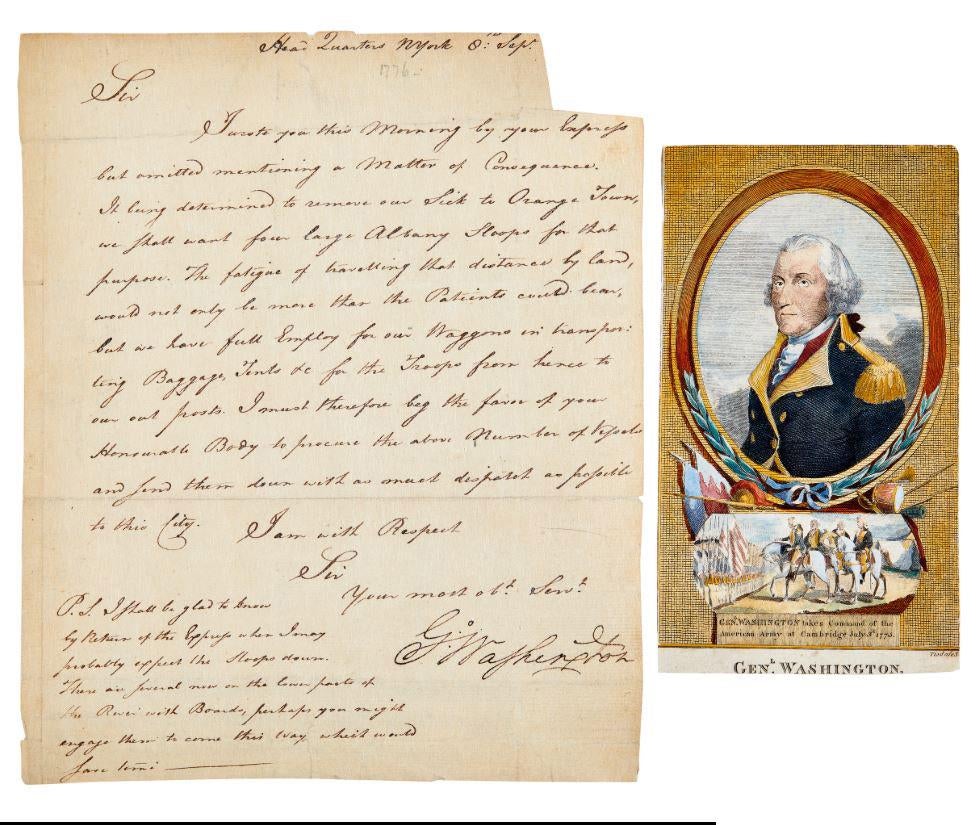 Head Quarters NYork 8.th Sepr.
1776.
Sir
I wrote you this Morning by your Express
but omitted mentioning a Matter of Consequence.
It being determined to remove our Sick to Orange Town,
we shall want four large Albany Sloops for that
purpose. The fatigue of travelling that distance by land,
would not only be more than the Patients could bear,
but we have full Employ for our Waggons in transpor:
ting Baggage, Tents &c for the Troops from hence to
our out posts. I must therefore beg the favor of your
Honourable Body to procure the above Number of Vessels
and send them down with as much dispatch as possible
to this City.
I am with Respect
Sir
Your most obt. Servt.
Go: Washington
P.S. I shall be glad to know
by Return of the Express when I may
probably expect the Sloops down.
There are several now on the lower parts of
the River with Boards, perhaps you might
engage them to come this way which would
save time
GENL. WASHINGTON takes Command of the
American Army at Cambridge July 3d. 1775.
Tisdale S.
GENL. WASHINGTON.